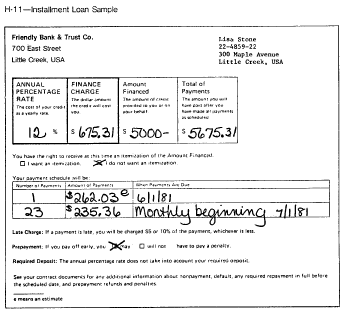 H-11—Installment Loan Sample
Friendly Bank & Trust Co.
700 East Street
Little Creek, USA
Lisa Stone
22-4859-22
300 Maple Avenue
Little Creek, USA
ANNUAL PERCENTAGE RATE
The cost of your credit as a yearly rate.
12 %
FINANCE CHARGE
The dollar amount the credit will cost you.
$ 675.31
Amount Financed
The amount of credit provided to you or on your behalf.
$ 5000-
Total of Payments
The amount you will have paid after you have made all payments as scheduled.
$ 5675.31
You have the right to receive at this time an itemization of the Amount Financed.
☐ I want an itemization. ☒ I do not want an itemization.
Your payment schedule will be:
Number of Payments Amount of Payments When Payments Are Due
1 $262.03 e 6/1/81
23 $235.36 Monthly beginning 7/1/81
Late Charge: If a payment is late, you will be charged $5 or 10% of the payment, whichever is less.
Prepayment: If you pay off early, you ☒ may ☐ will not have to pay a penalty.
Required Deposit: The annual percentage rate does not take into account your required deposit.
See your contract documents for any additional information about nonpayment, default, any required repayment in full before
the scheduled date, and prepayment refunds and penalties.
e means an estimate